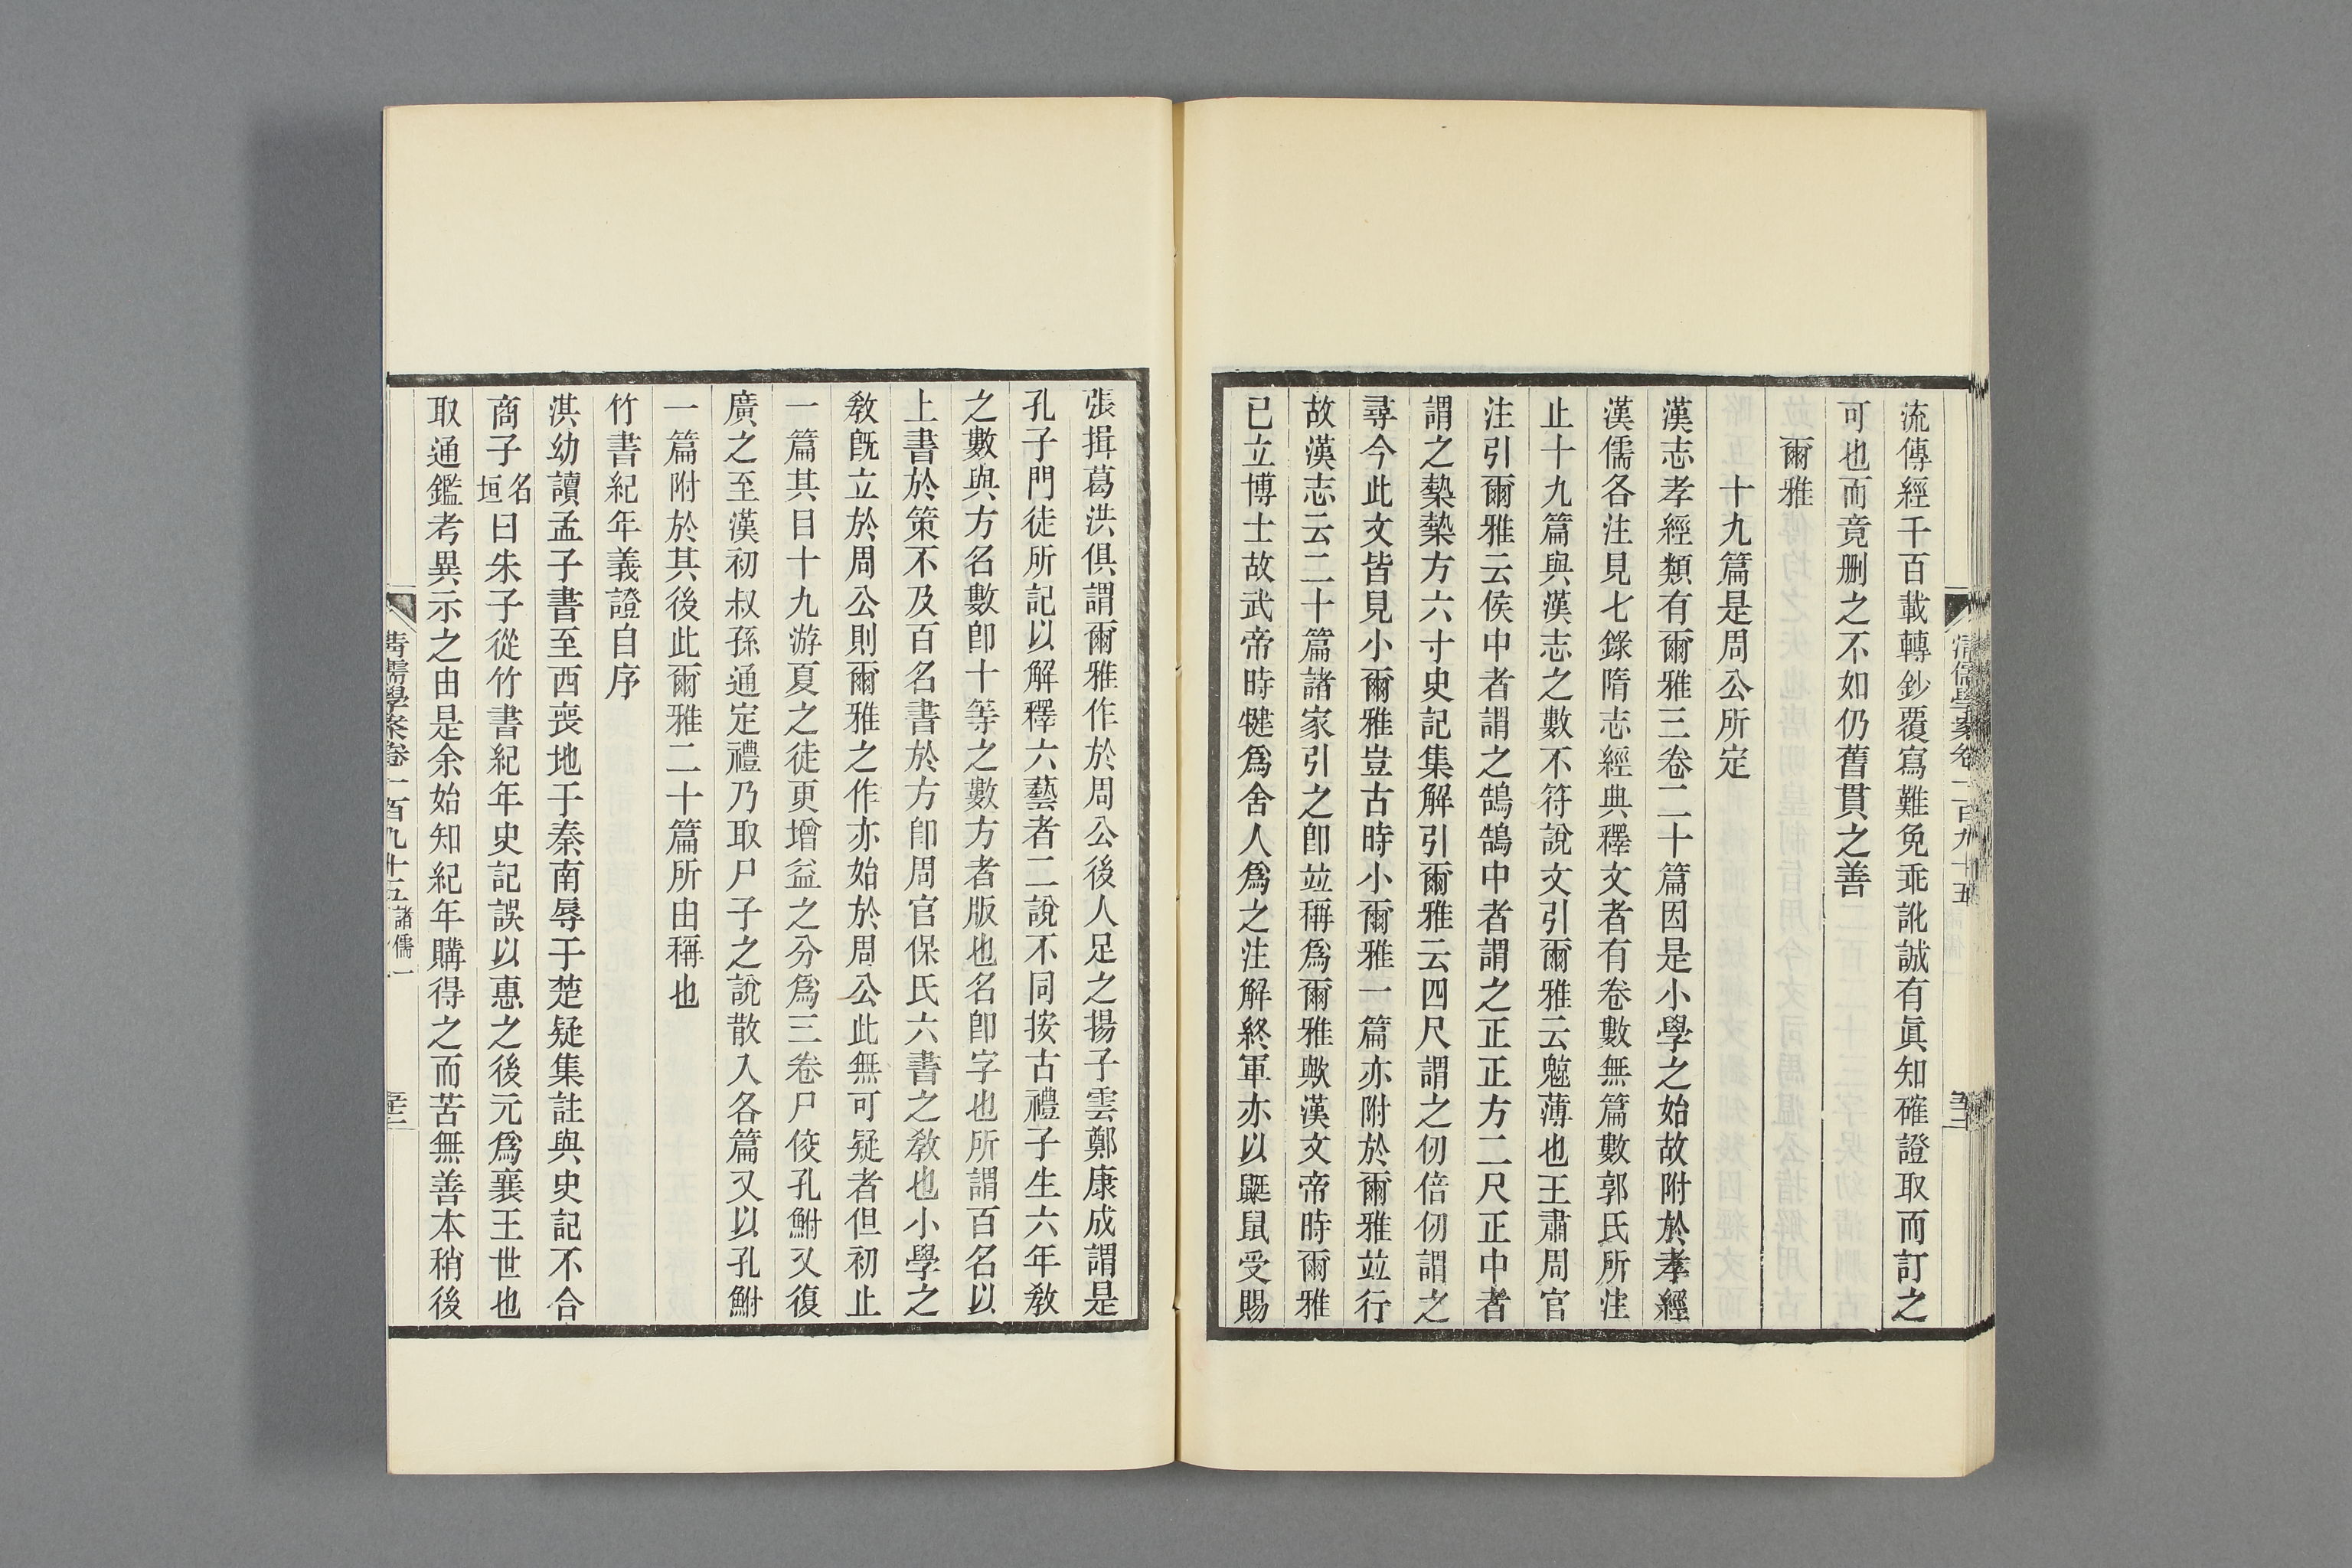 流傳經千百載轉鈔覆寫難免乖訛誠有眞知確證取而訂之
可也而竟刪之不如仍舊貫之善
爾雅
十九篇是周公所定
漢志孝經類有爾雅三卷二十篇因是小學之始故附於孝經
漢儒各注見七錄隋志經典釋文者有卷數無篇數郭氏所注
止十九篇與漢志之數不符說文引爾雅云䰧薄也王肅周官
注引爾雅云侯中者謂之鵠鵠中者謂之正正方二尺正中者
謂之槷槷方六寸史記集解引爾雅云四尺謂之仞倍仞謂之
尋今此文皆見小爾雅豈古時小爾雅一篇亦附於爾雅竝行
故漢志云二十篇諸家引之卽竝稱爲爾雅歟漢文帝時爾雅
已立博士故武帝時犍爲舍人爲之注解終軍亦以鼮鼠受賜
張揖葛洪俱謂爾雅作於周公後人足之揚子雲鄭康成謂是
孔子門徒所記以解釋六藝者二說不同按古禮子生六年敎
之數與方名數卽十等之數方者版也名卽字也所謂百名以
上書於策不及百名書於方卽周官保氏六書之敎也小學之
敎旣立於周公則爾雅之作亦始於周公此無可疑者但初止
一篇其目十九游夏之徒更增益之分爲三卷尸佼孔鮒又復
廣之至漢初叔孫通定禮乃取尸子之說散入各篇又以孔鮒
一篇附於其後此爾雅二十篇所由稱也
竹書紀年義證自序
淇幼讀孟子書至西喪地于秦南辱于楚疑集註與史記不合
商子名垣曰朱子從竹書紀年史記誤以惠之後元爲襄王世也
取通鑑考異示之由是余始知紀年購得之而苦無善本稍後
清儒學案卷一百九十五諸儒一